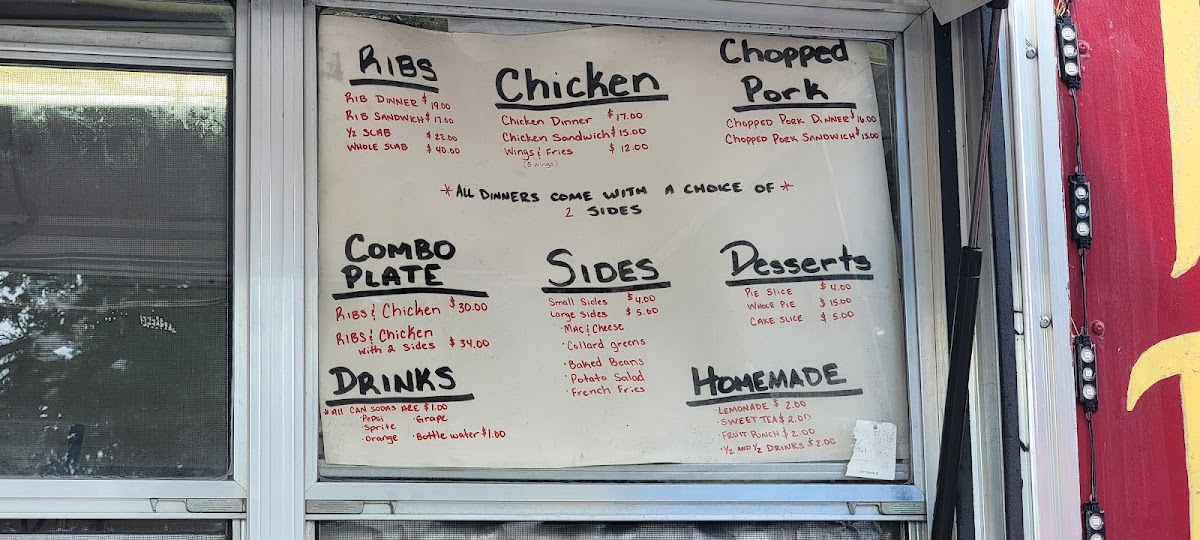 RIBS
RIB DINNER $19.00
RIB SANDWICH $17.00
1/2 SLAB $22.00
WHOLE SLAB $40.00
Chicken
Chicken Dinner $17.00
Chicken Sandwich $15.00
Wings & Fries $12.00
(5 wings)
Chopped
Pork
CHOPPED PORK DINNER $16.00
CHOPPED PORK SANDWICH $15.00
*ALL DINNERS COME WITH A CHOICE OF*
2 SIDES
COMBO
PLATE
RIBS & Chicken $30.00
RIBS & Chicken
with 2 Sides $34.00
SIDES
Small Sides $4.00
Large Sides $5.00
·MAC & Cheese
·Collard greens
·Baked Beans
·Potato Salad
·French Fries
Desserts
PIE SLICE $4.00
WHOLE PIE $15.00
CAKE SLICE $5.00
DRINKS
*All CAN SODAS ARE $1.00
·Pepsi ·Grape
·Sprite
·Orange ·Bottle water $1.00
HOMEMADE
·LEMONADE $2.00
·SWEET TEA $2.00
·FRUIT PUNCH $2.00
·1/2 AND 1/2 DRINKS $2.00